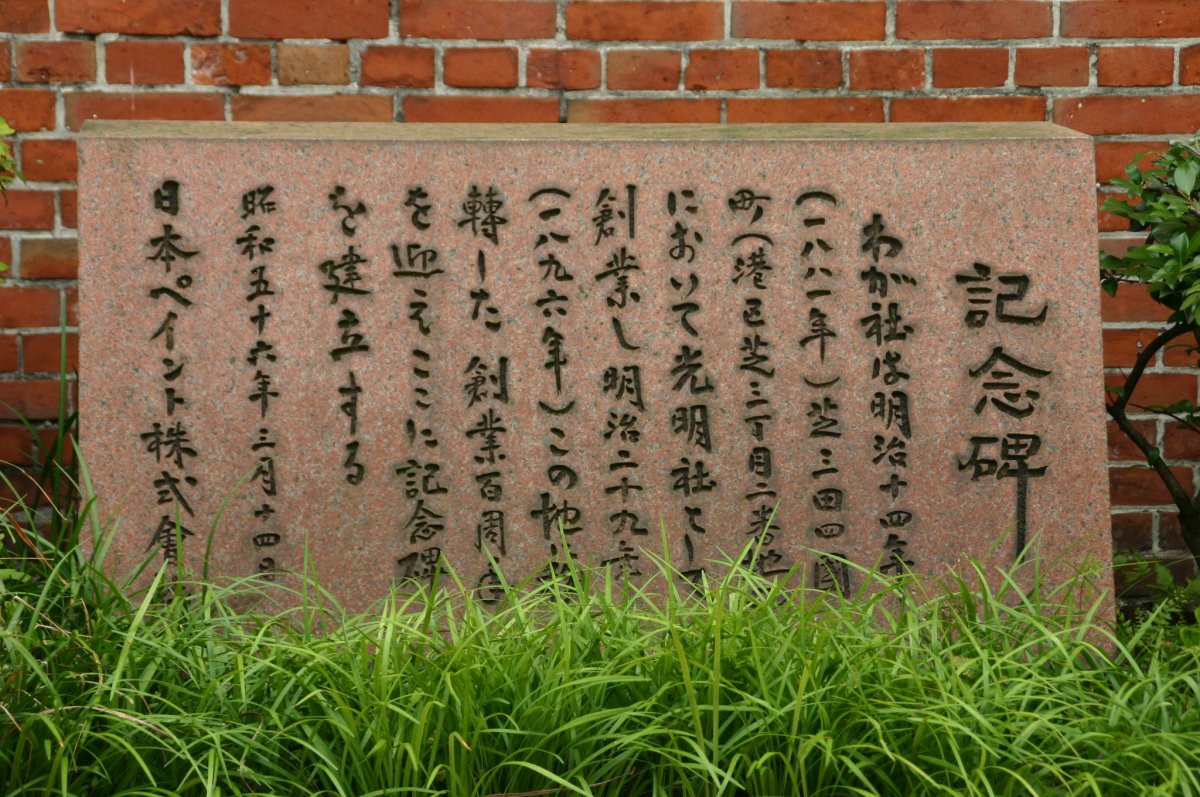 記念碑
わが社は明治十四年
(一八八一年)芝三田四國
町(港区芝三丁目二番地
において光明社として
創業し明治二十九年
(一八九六年)この地に
轉じた 創業百周年
を迎えここに記念碑
を建立する
昭和五十六年三月十四日
日本ペイント株式會